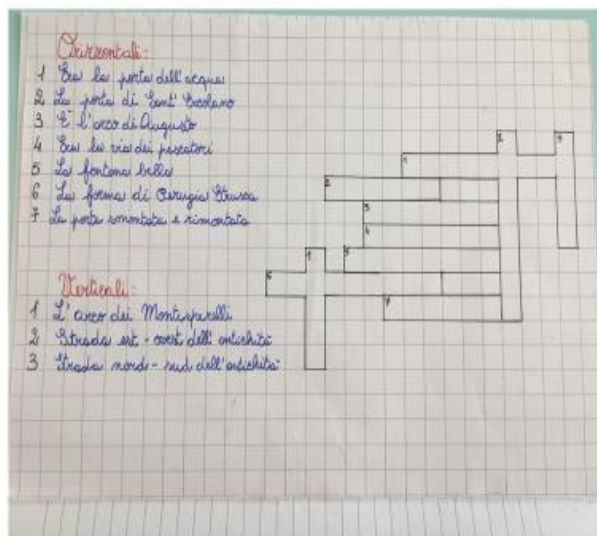 Orizzontali:
1 Era la porta dell'acqua
2 La porta di Sant' Ercolano
3 È l'arco di Augusto
4 Era la via dei pescatori
5 La fontana bella
6 La forma di Perugia Etrusca
7 La porta smontata e rimontata
1
2
3
2
3
4
1
5
6
7
Verticali:
1 L'arco dei Montesperelli
2 Strada est - ovest dell' antichità
3 Strada nord - sud dell'antichità